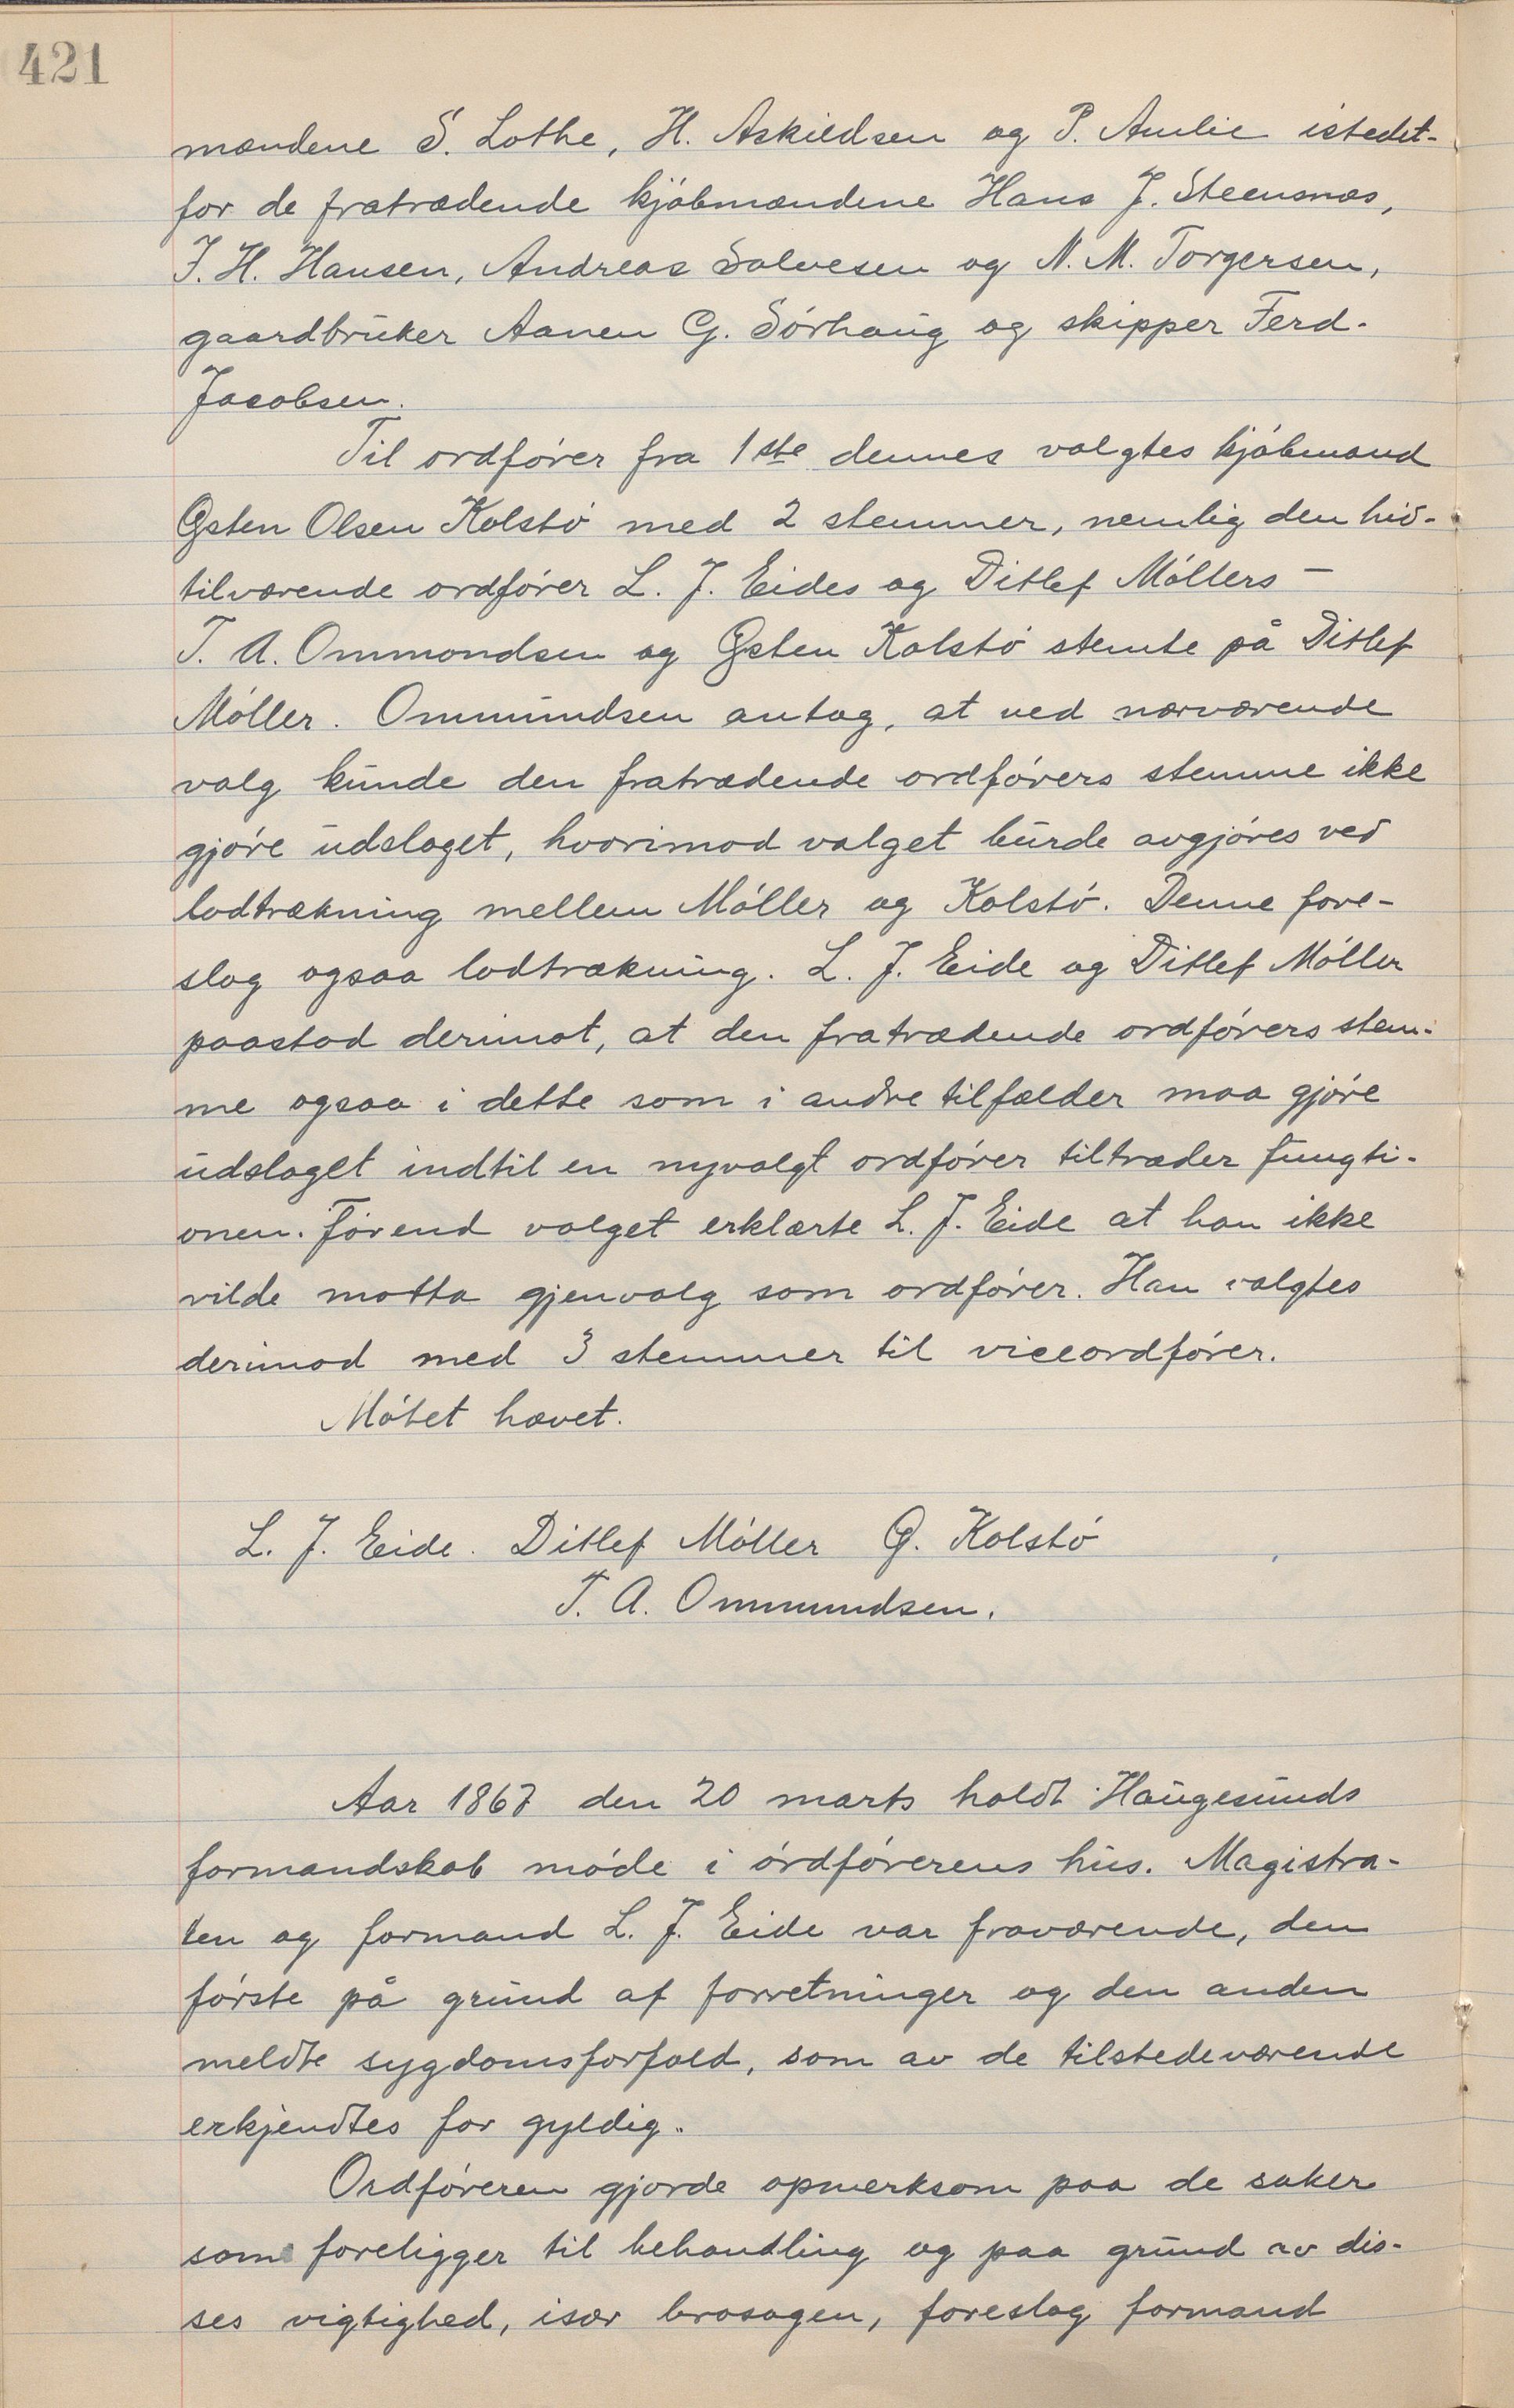 421
mændene S. Lothe, H. Askildsen og P. Amlie istedet-
for de fratrædende kjøbmændene Hans J. Steensnæs,
J. H. Hansen, Andreas Salvesen og N. M. Torgersen,
gaardbruker Aanen G. Sørhaug og skipper Ferd.
Jacobsen.
Til ordfører fra 1ste dennes valgtes kjøbmand
Østen Olsen Kolstø med 2 stemmer, nemlig den hid-
tilværende ordfører L. J. Eides og Ditlef Møllers –
T. A. Ommondsen og Østen Kolstø stemte på Ditlef
Møller. Ommundsen antog, at ved nærværende
valg kunde den fratrædende ordførers stemme ikke
gjøre udslaget, hvorimod valget burde avgjøres ved
lodtrækning mellem Møller og Kolstø. Denne fore-
slog ogsaa lodtrækning. L. J. Eide og Ditlef Møller
paastod derimot, at den fratrædende ordførers stem-
me ogsaa i dette som i andre tilfælder maa gjøre
udslaget indtil en nyvalgt ordfører tiltræder fungti-
onen. Førend valget erklærte L. J. Eide at han ikke
vilde motta gjenvalg som ordfører. Han valgtes
derimod med 3 stemmer til viceordfører.
Møtet hævet.
L. J. Eide. Ditlef Møller Ø. Kolstø
T. A. Ommundsen.
Aar 1867 den 20 marts holdt Haugesunds
formandskab møde i ordførerens hus. Magistra-
ten og formand L. J. Eide var fraværende, den
første på grund af forretninger og den anden
meldte sygdomsforfald, som av de tilstedeværende
erkjendtes for gyldig.
Ordføreren gjorde opmerksom paa de saker
som foreligger til behandling og paa grund av dis-
ses vigtighed, især brosagen, foreslog formand